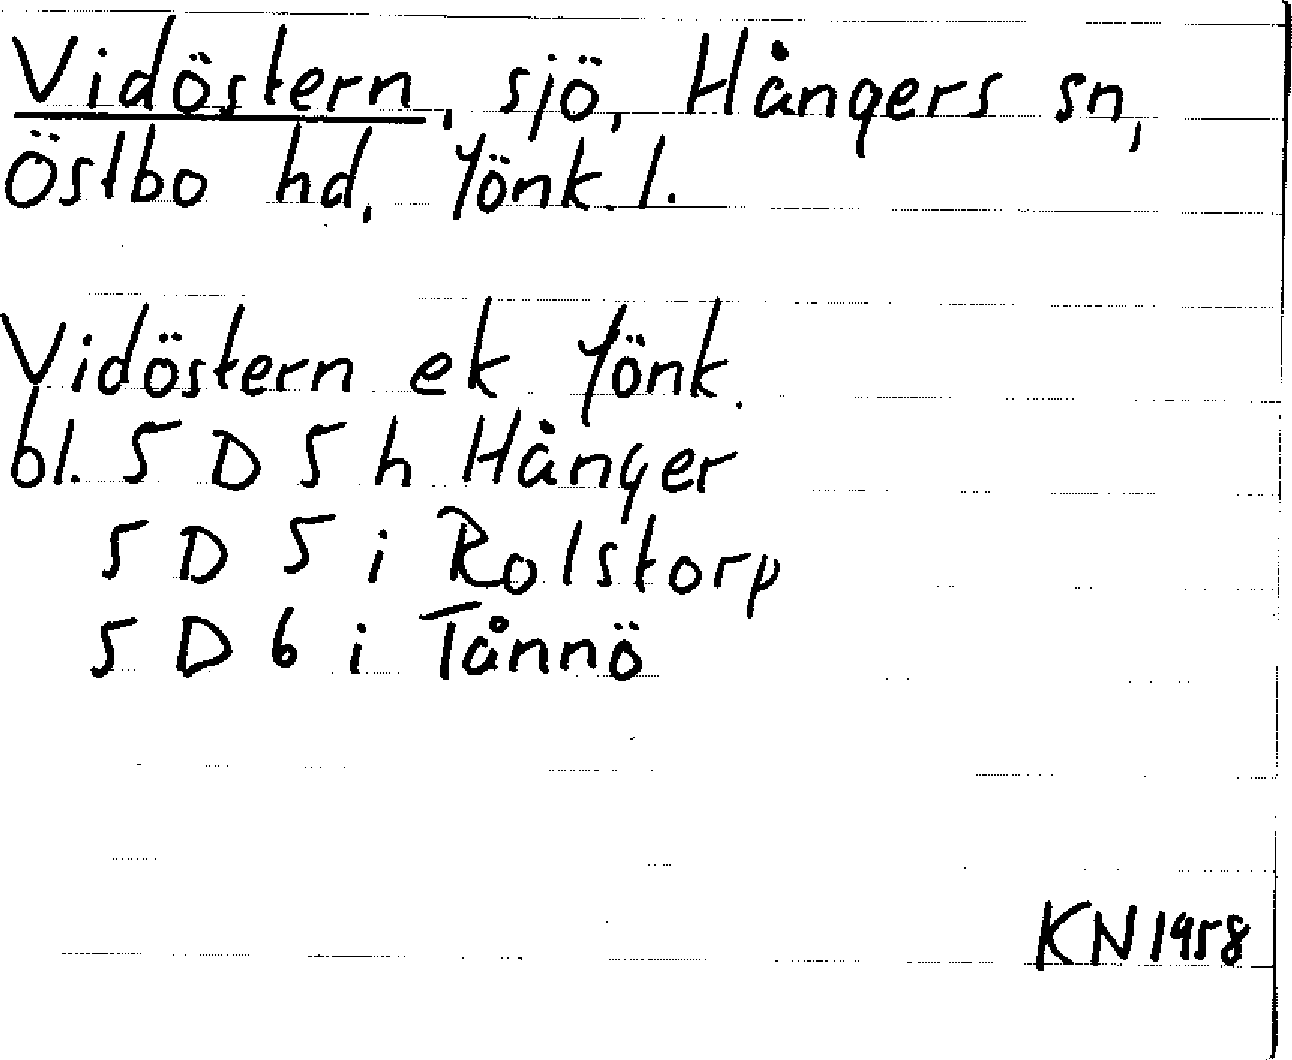 Vidöstern, sjö, Hångers sn,
Östbo hd, Jönk. l.
Vidöstern ek Jönk.
bl. 5 D 5 h Hånger
5 D 5 i Rolstorp
5 D 6 i Tånnö
KN 1958